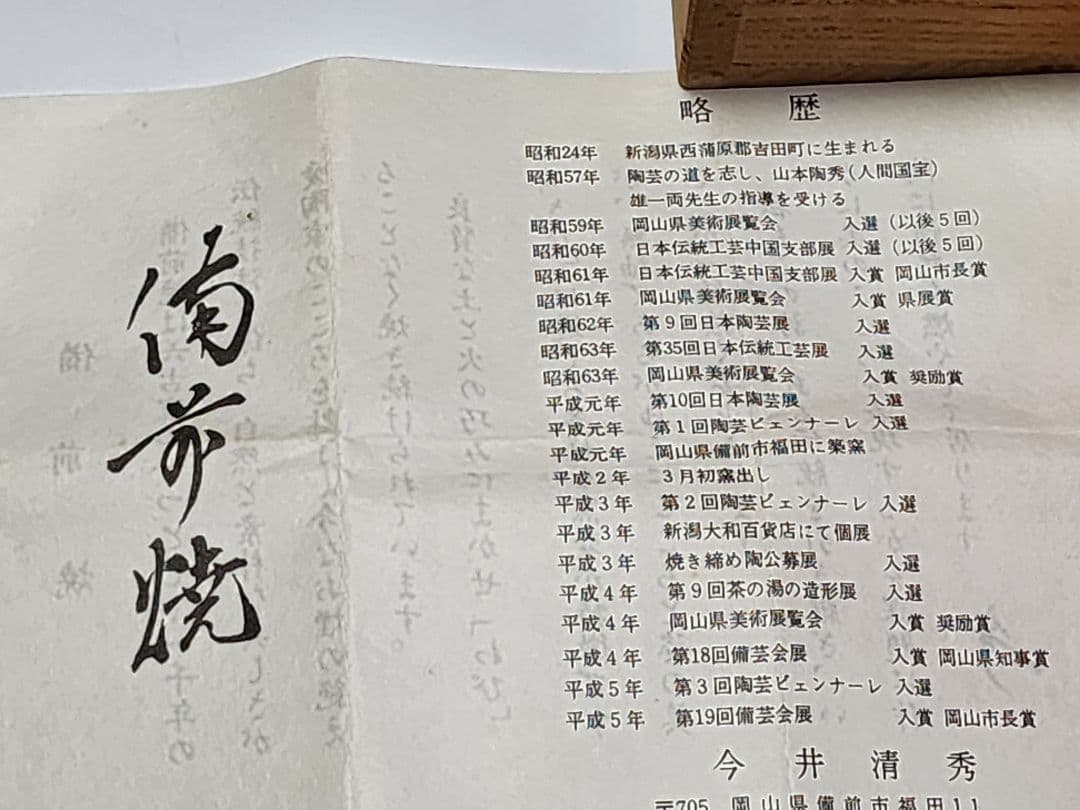 備前焼
略歴
昭和24年 新潟県西蒲原郡吉田町に生まれる
昭和57年 陶芸の道を志し、山本陶秀(人間国宝)
雄一両先生の指導を受ける
昭和59年 岡山県美術展覧会 入選(以後5回)
昭和60年 日本伝統工芸中国支部展 入選(以後5回)
昭和61年 日本伝統工芸中国支部展 入賞 岡山市長賞
昭和61年 岡山県美術展覧会 入賞 県展賞
昭和62年 第9回日本陶芸展 入選
昭和63年 第35回日本伝統工芸展 入選
昭和63年 岡山県美術展覧会 入賞 奨励賞
平成元年 第10回日本陶芸展 入選
平成元年 第1回陶芸ビェンナーレ 入選
平成元年 岡山県備前市福田に築窯
平成2年 3月初窯出し
平成3年 第2回陶芸ビェンナーレ 入選
平成3年 新潟大和百貨店にて個展
平成3年 焼き締め陶公募展 入選
平成4年 第9回茶の湯の造形展 入選
平成4年 岡山県美術展覧会 入賞 奨励賞
平成4年 第18回備芸会展 入賞 岡山県知事賞
平成5年 第3回陶芸ビェンナーレ 入選
平成5年 第19回備芸会展 入賞 岡山市長賞
今井清秀
〒705 岡山県備前市福田11